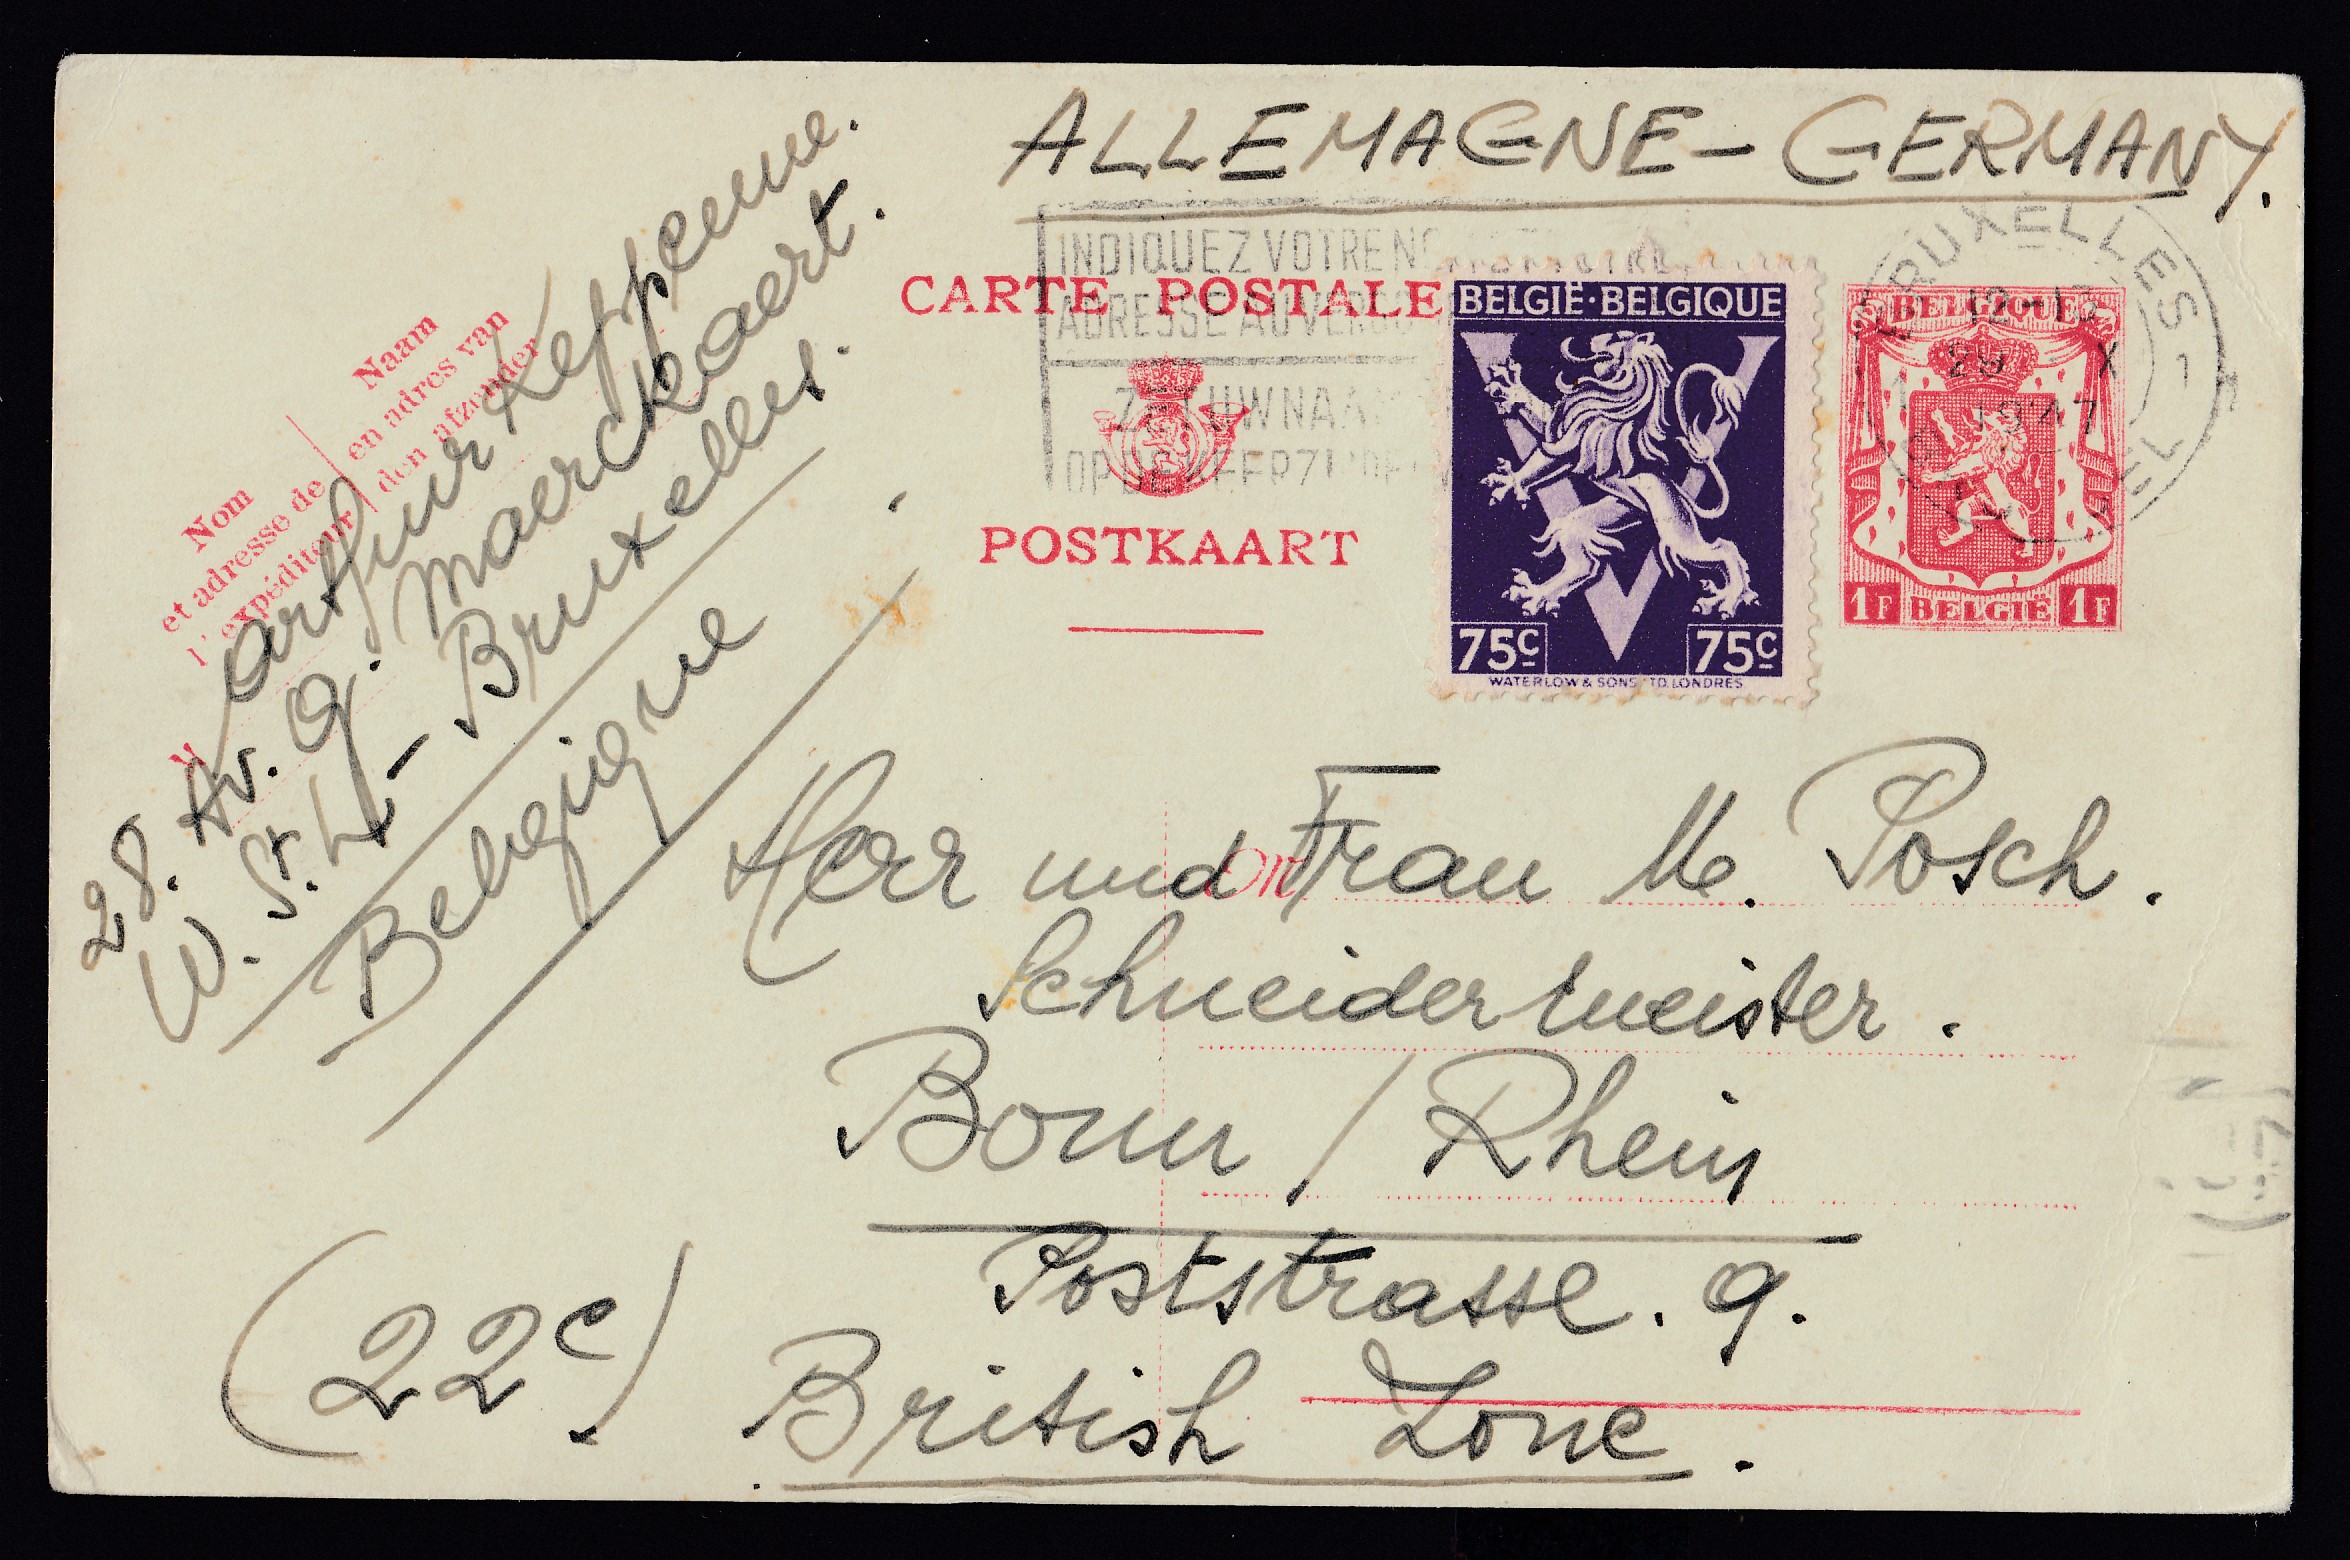 ALLEMAGNE-GERMANY.
INDIQUEZ VOTRE
ADRESSE AU
CARTE POSTALE
POSTKAART
BELGIË·BELGIQUE
75c 75c
WATERLOW & SONS LONDRES
BELGIQUE
1F BELGIË 1F
BRUXELLES 1
12-13
29 X
1947
Naam
en adres van
den afzender
Nom
et adresse de
l'expéditeur
Arthur Keppenne.
28. Av. G. Maerckaert.
W. St. L - Bruxelles.
Belgique
Herr und Frau M. Posch.
Schneidermeister.
Bonn / Rhein
Poststrasse. 9.
(22c)
British Zone.